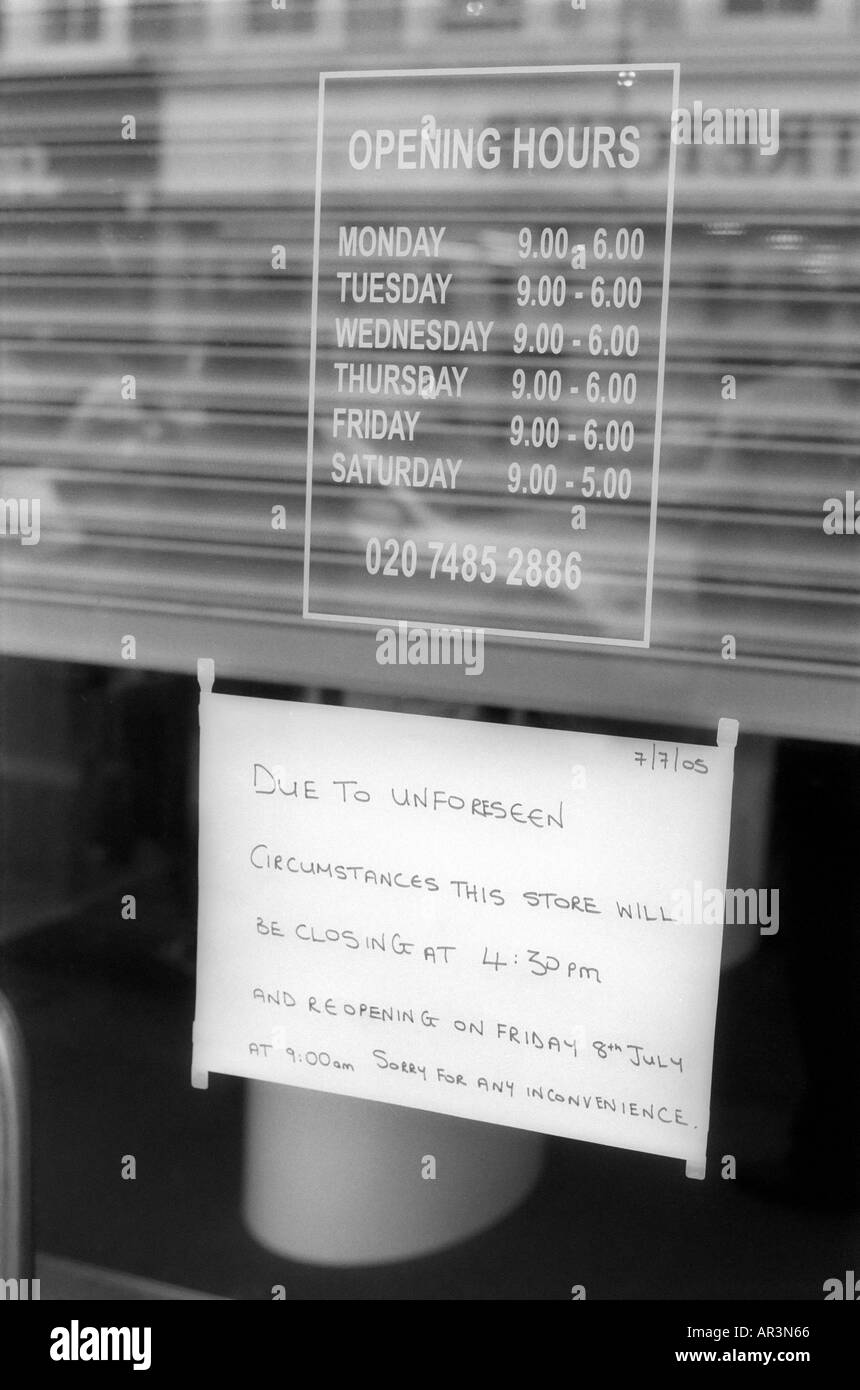 OPENING HOURS
MONDAY 9.00 - 6.00
TUESDAY 9.00 - 6.00
WEDNESDAY 9.00 - 6.00
THURSDAY 9.00 - 6.00
FRIDAY 9.00 - 6.00
SATURDAY 9.00 - 5.00
020 7485 2886
7/7/05
DUE TO UNFORESEEN
CIRCUMSTANCES THIS STORE WILL
BE CLOSING AT 4:30pm
AND REOPENING ON FRIDAY 8th JULY
AT 9:00am SORRY FOR ANY INCONVENIENCE.
alamy
alamy stock photo
AR3N66
www.alamy.com